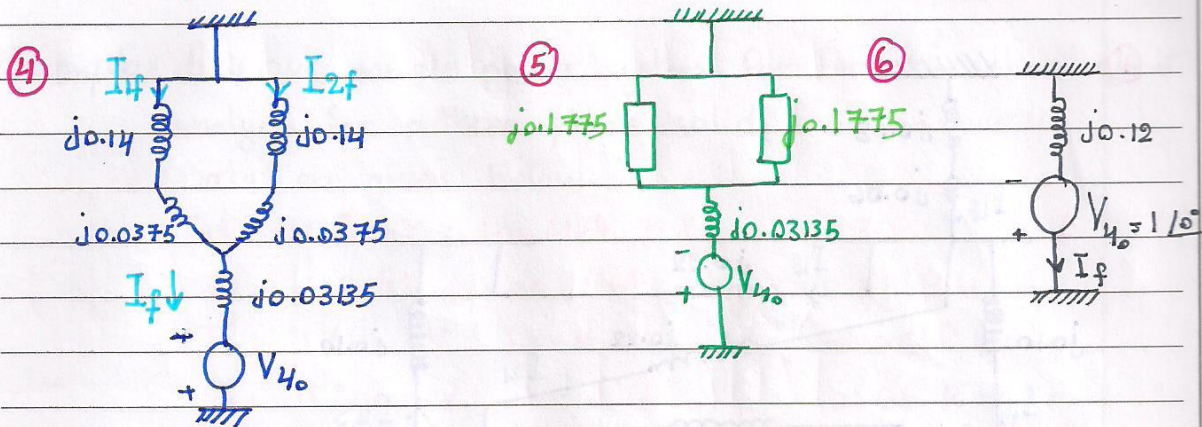 ④
I1f
I2f
j0.14
j0.14
j0.0375
j0.0375
If↓
j0.03135
+
+
V4₀
⑤
j0.1775
j0.1775
j0.03135
-
+
V4₀
⑥
j0.12
-
+
V4₀=1/0°
If